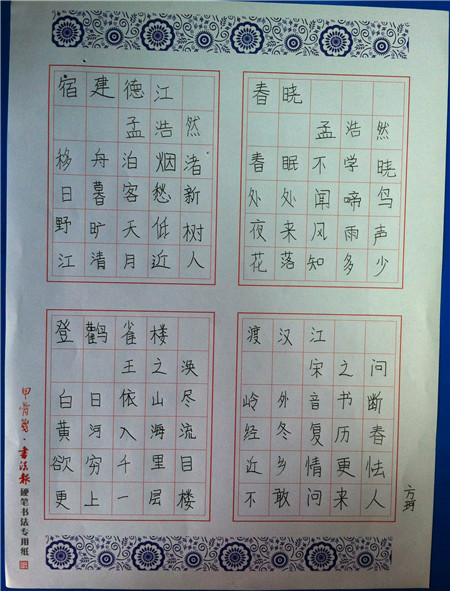 宿建德江
孟浩然
移舟泊烟渚
日暮客愁新
野旷天低树
江清月近人
春晓
孟浩然
春眠不学晓
处处闻啼鸟
夜来风雨声
花落知多少
登鹳雀楼
王之涣
白日依山尽
黄河入海流
欲穷千里目
更上一层楼
渡汉江
宋之问
岭外音书断
经冬复历春
近乡情更怯
不敢问来人
方
甲骨笺·书法报 硬笔书法专用纸